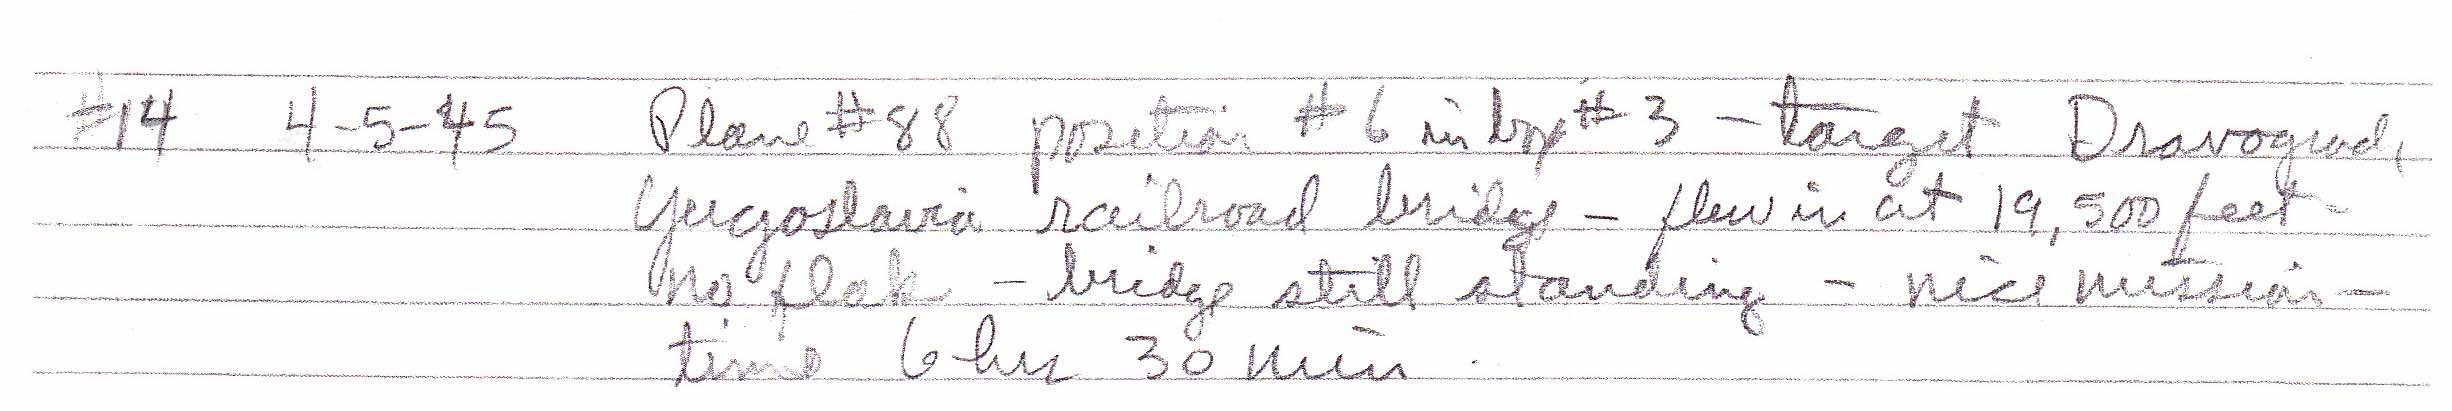 #14 4-5-45 Plane #88 position #6 in box #3 - target Dravograd,
Yugoslavia railroad bridge - flew in at 19,500 feet -
no flak - bridge still standing - nice mission -
time 6 hrs 30 min.